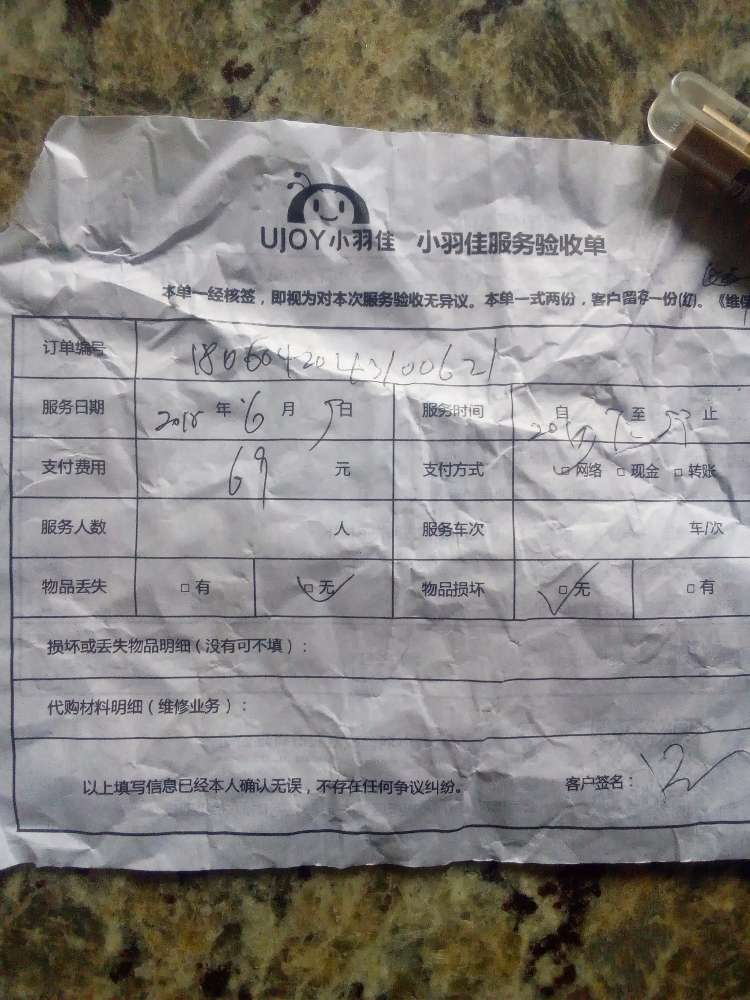 UJOY小羽佳 小羽佳服务验收单
本单一经核签，即视为对本次服务验收无异议。本单一式两份，客户留存一份(红)。《维
订单编号 1806042043100621
服务日期 2018年6月5日 服务时间 自 至 止
支付费用 69元 支付方式 □网络 □现金 □转账
服务人数 人 服务车次 车/次
物品丢失 □有 □无 物品损坏 □无 □有
损坏或丢失物品明细（没有可不填）：
代购材料明细（维修业务）：
以上填写信息已经本人确认无误，不存在任何争议纠纷。 客户签名：